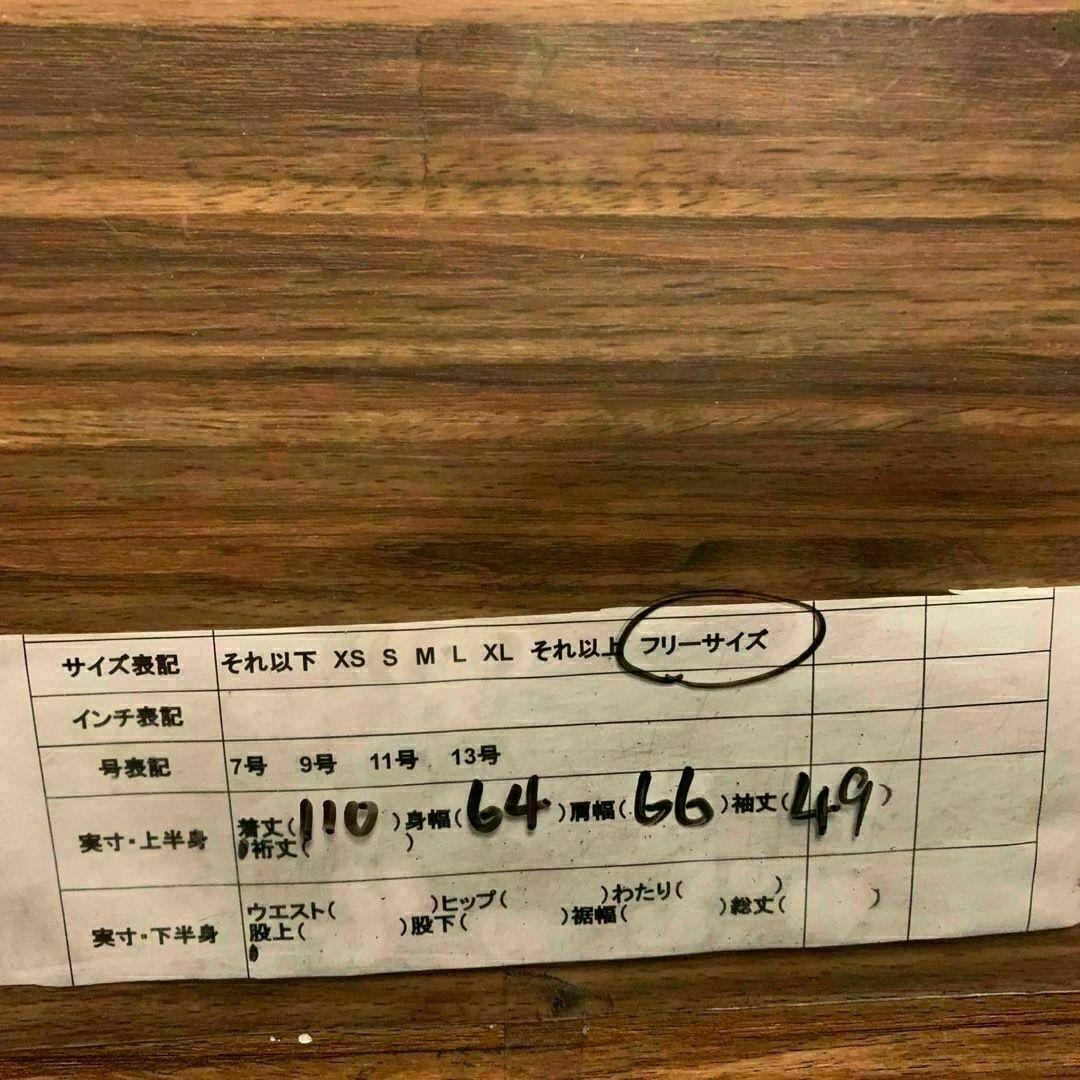 サイズ表記 それ以下 XS S M L XL それ以上 フリーサイズ
インチ表記
号表記 7号 9号 11号 13号
実寸・上半身 着丈(110)身幅(64)肩幅(66)袖丈(49)
裄丈( )
実寸・下半身 ウエスト( )ヒップ( )わたり( )
股上( )股下( )裾幅( )総丈( )